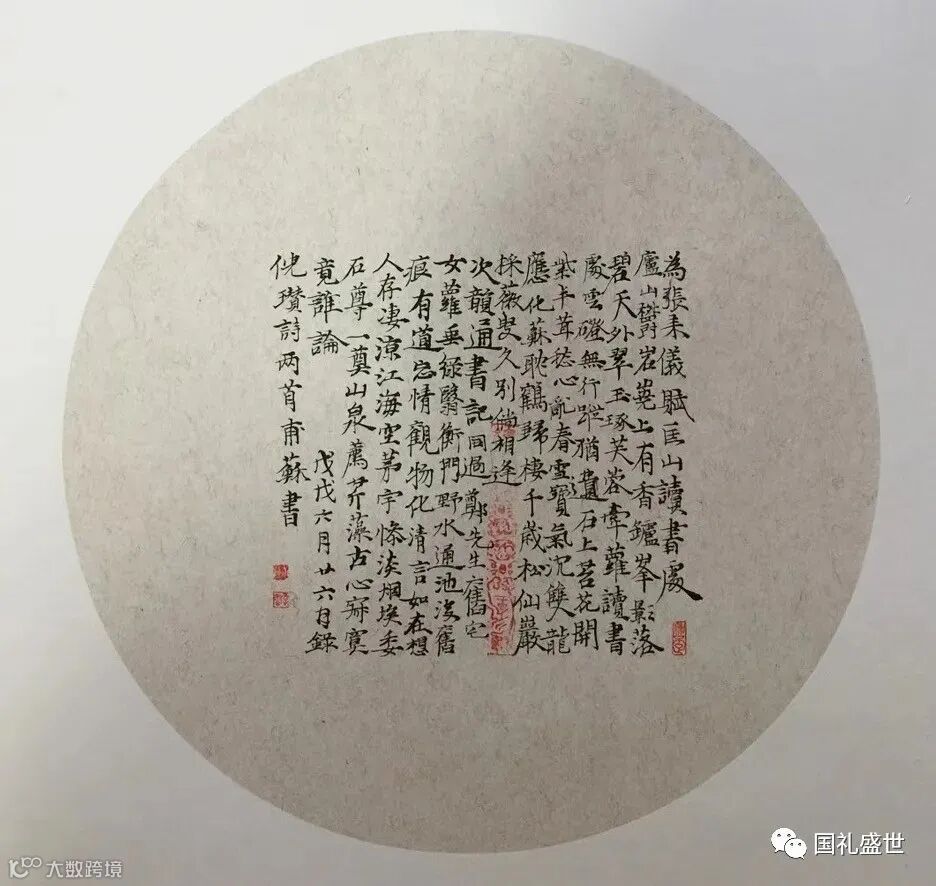 為張耒儀賦匡山讀書處
廬山鬱岧嶤上有香鑪峯影落
碧天外翠玉琢芙蓉牽蘿讀書
處雲磴無行蹤猶遺石上苔花開
紫丰茸愁心亂春雪寶氣沉雙龍
應化蘇耽鶴歸棲千歲松仙巖
採薇叟久别倘相逢
次韻通書記同過鄭先生舊宅
女蘿垂綠翳衡門野水通池没舊
痕有道忘情觀物化清言如在想
人存凄涼江海空茅宇慘淡烟埃委
石尊一奠山泉薦芹藻古心寂寞
竟誰論 戊戌六月廿六月録
倪瓚詩两首甫蘇書
国礼盛世
大数跨境